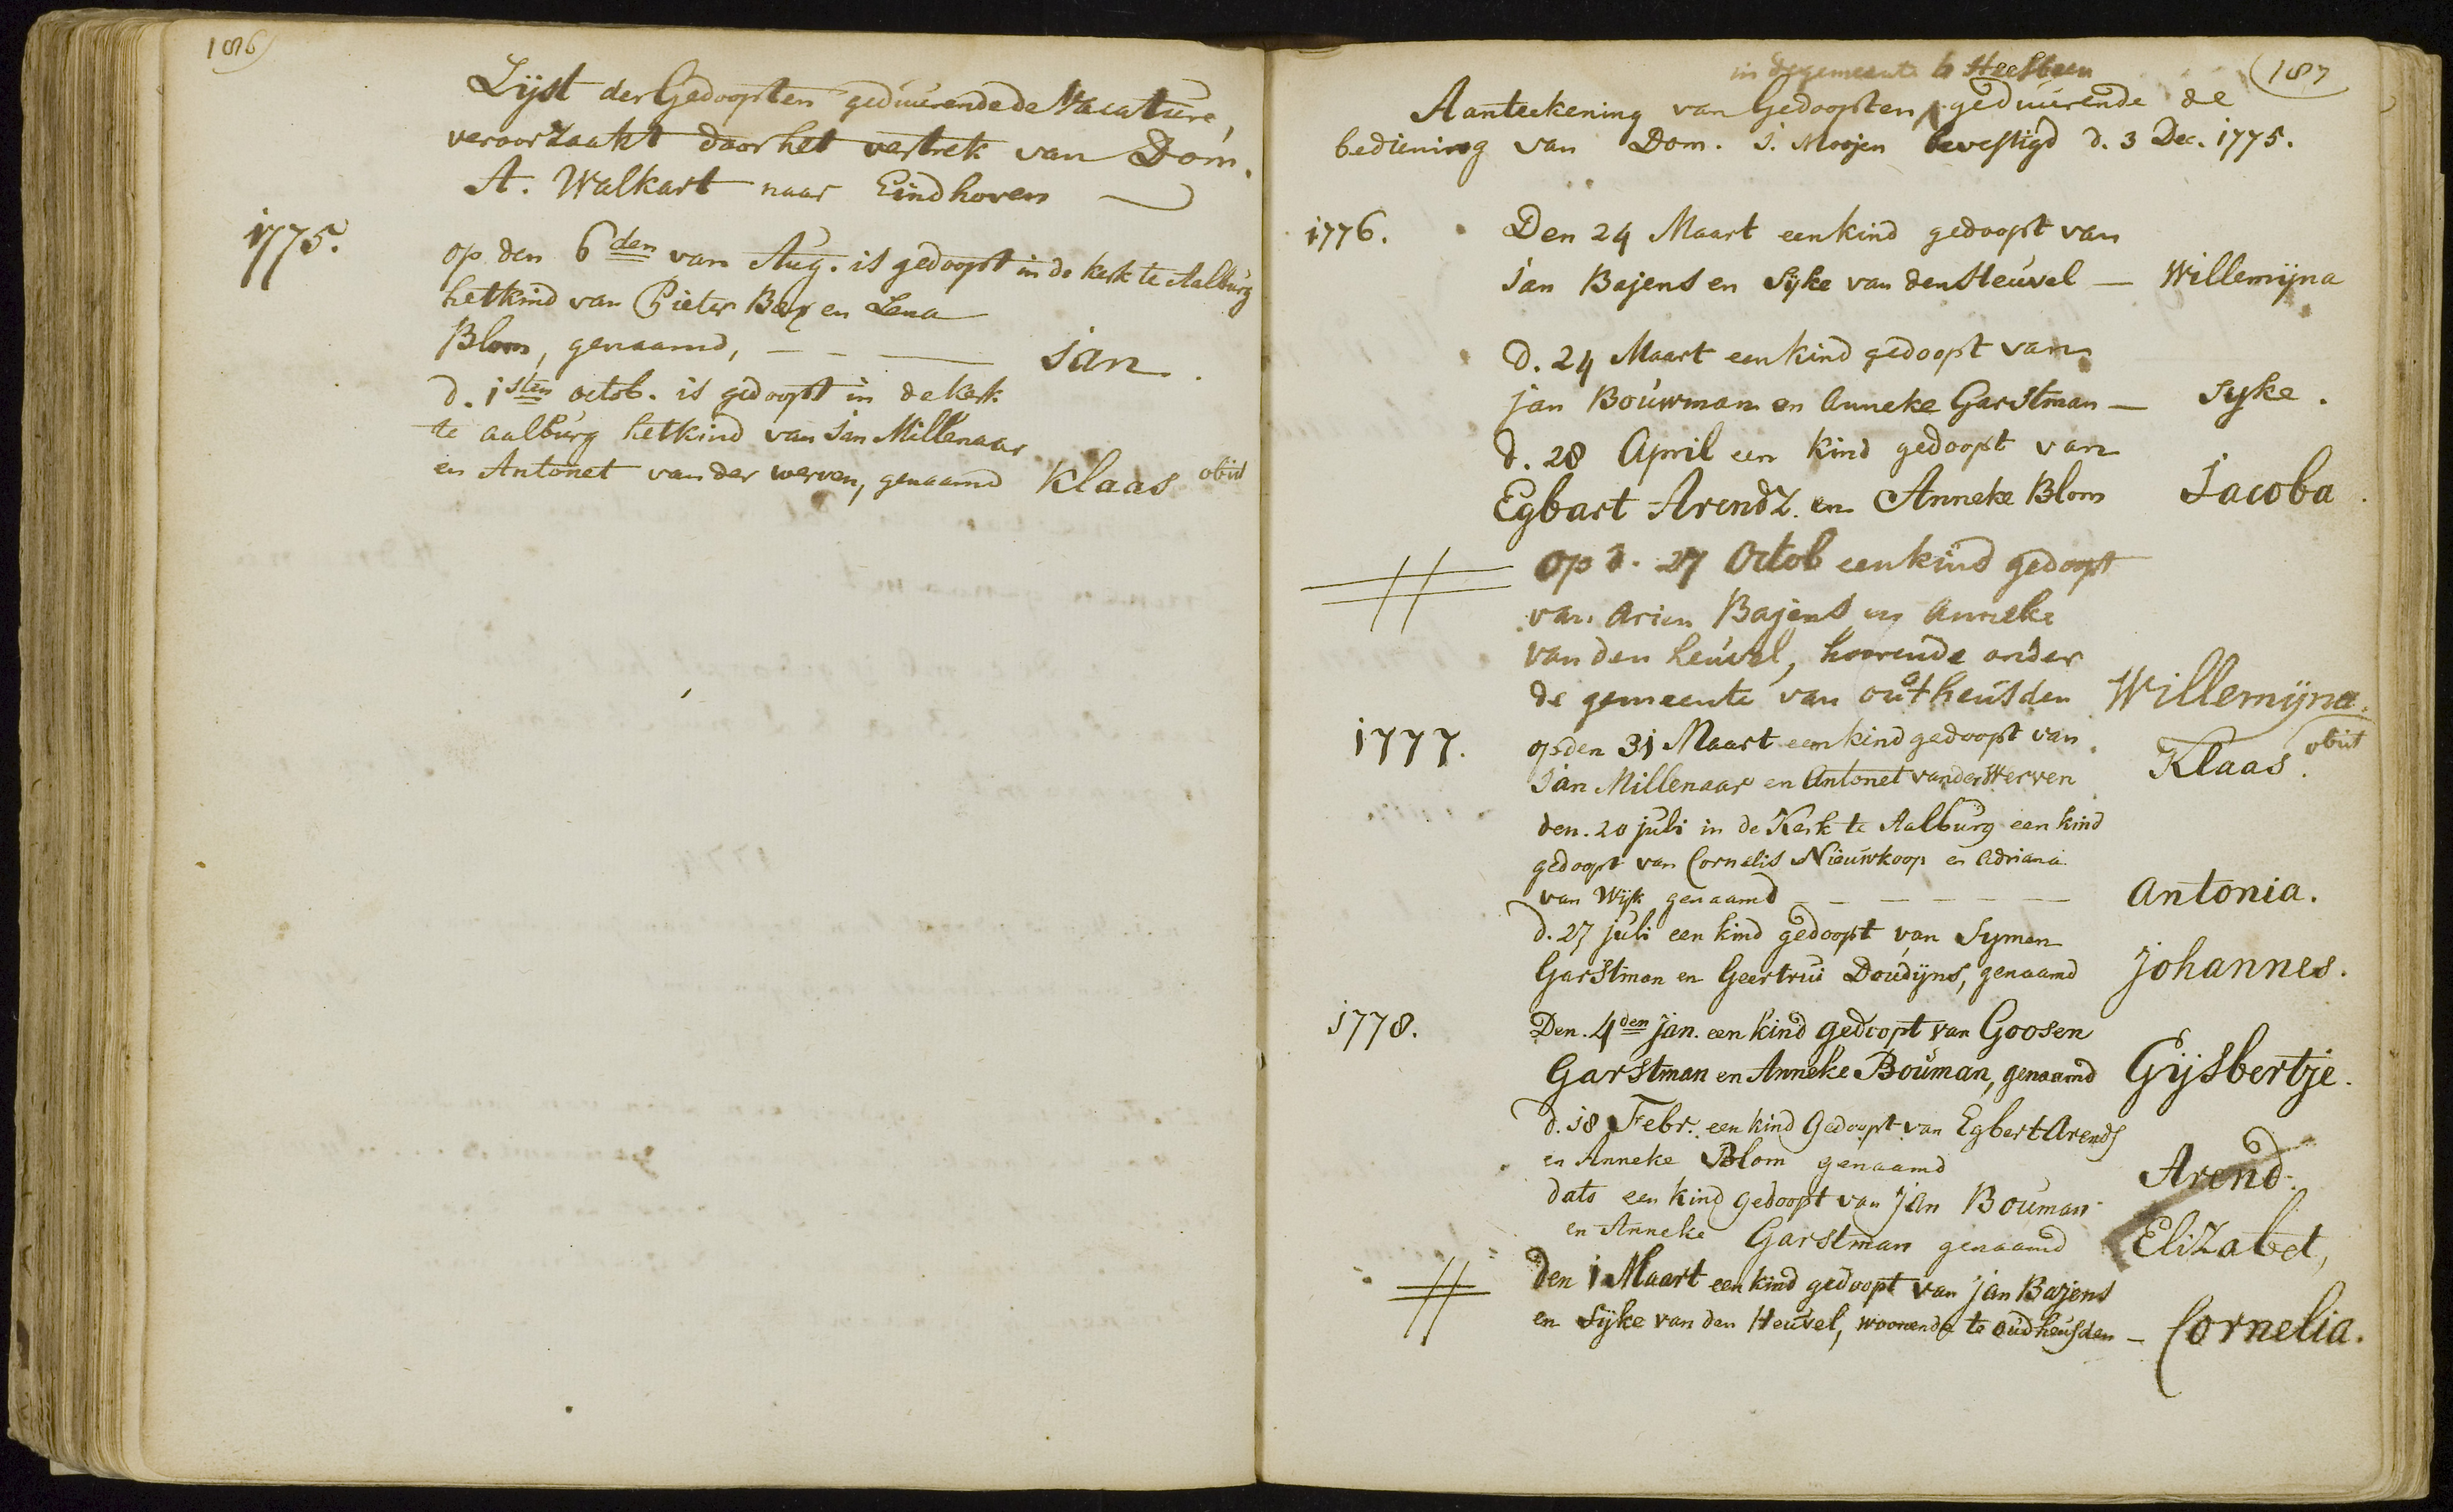 186)
Lijst der Gedoopten geduurende de Vacature,
veroorzaakt door het vertrek van Dom.
A. Walkart naar Eindhoven
1775.
op den 6den van Aug. is gedoopt in de kerk te Aalburg
het kind van Pieter Bax en Lena
Blom, genaamd, - - — Jan.
d. 1sten octob. is gedoopt in de kerk
te aalburg het kind van Jan Millenaar
en Antonet van der werven, genaamd Klaas obiit
(187
in de gemeente te Heesbeen
Aanteekening van Gedoopten geduurende de
bediening van Dom. J. Moojen bevestigd d. 3 Dec. 1775.
1776. Den 24 Maart een kind gedoopt van
Jan Bajens en Sijke van den Heuvel — Willemijna
d. 24 Maart een kind gedoopt van
jan Bouwman en Anneke Garstman — Syke.
d. 28 April een kind gedoopt van
Egbart Arendz. en Anneke Blom Jacoba.
op d. 27 Octob een kind gedoopt
van Arien Bajens en Anneke
van den heuvel, hoorende onder
de gemeente van outheusden Willemijna.
1777. op den 31 Maart een kind gedoopt van
Jan Millenaar en Antonet van der Werven Klaas. obiit
den. 20 juli in de Kerk te Aalburg een kind
gedoopt van Cornelis Nieuwkoop en Adriana
van Wijk genaamd - - - - - — Antonia.
d. 27 juli een kind gedoopt van Symen
Garstman en Geertrui Doudijns, genaamd Johannes.
1778. Den. 4den jan. een kind gedoopt van Goosen
Garstman en Anneke Bouman, genaamd Gijsbertje.
d. 18 Febr. een kind Gedoopt van Egbert Arends
en Anneke Blom genaamd Arend.
dato een kind gedoopt van Jan Bouman
en Anneke Garstman genaamd Elizabet,
den 1 Maart een kind gedoopt van jan Bajens
en Sijke van den Heuvel, woonende te oudheusden - Cornelia.